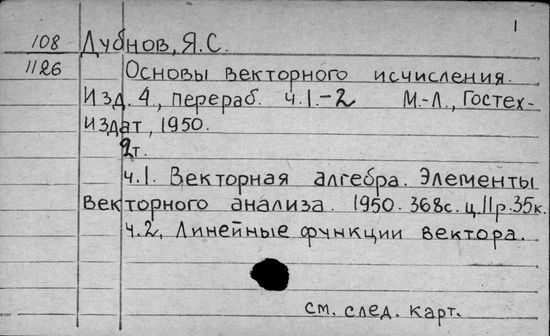 1
108 Дубнов, Я.С.
1126 Основы векторного исчисления.
Изд. 4., перераб. ч.1.-2 М.-Л., Гостех-
издат, 1950.
2т.
ч.1. Векторная алгебра. Элементы
векторного анализа. 1950. 368с. ц.11р.35к.
ч.2, Линейные функции вектора.
см. след. карт.